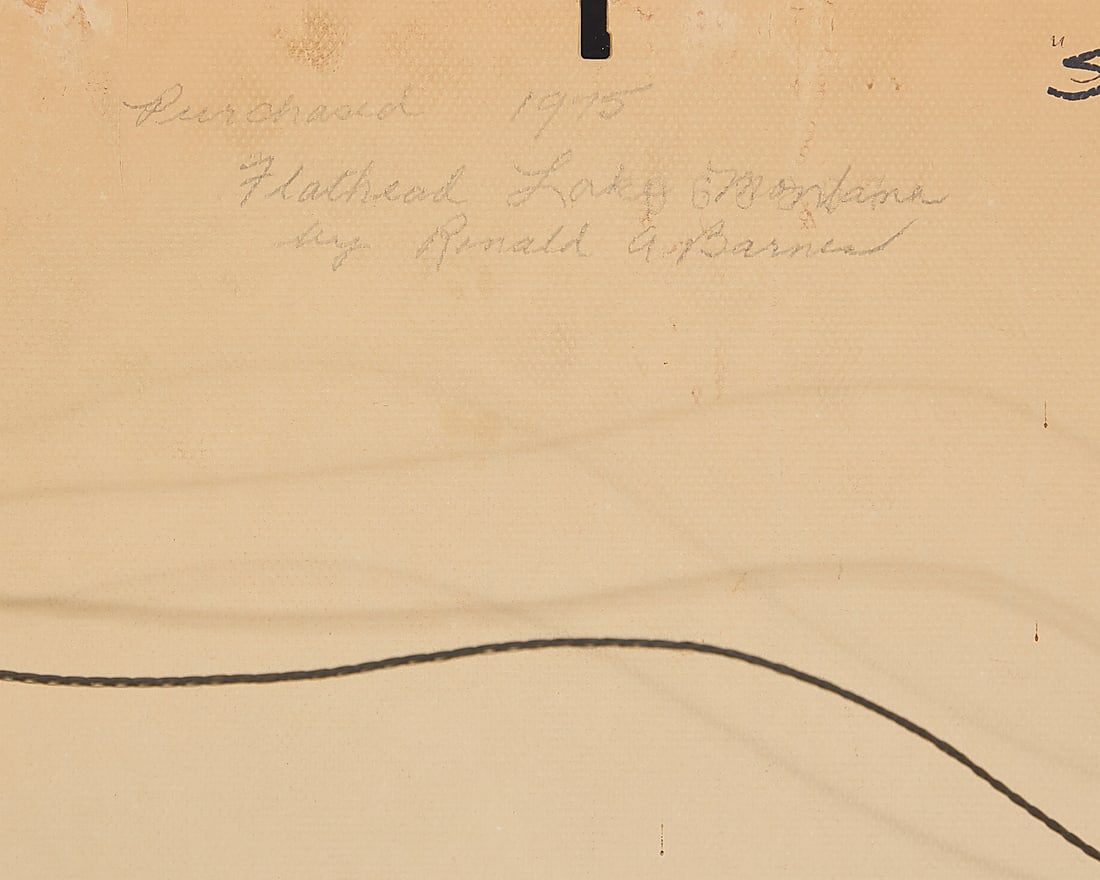 Purchased 1975
Flathead Lake Montana
by Ronald A Barnes
"S